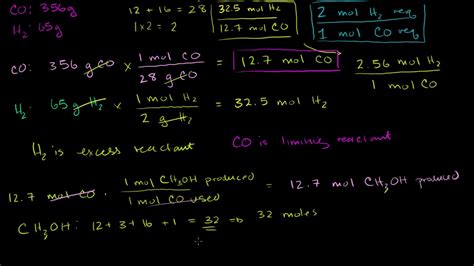 CO: 356g
H₂: 65g
12 + 16 = 28
1×2 = 2
32.5 mol H₂
12.7 mol CO
2 mol H₂ req
1 mol CO req
CO: 356 g CO × 1 mol CO / 28 g CO = 12.7 mol CO
2.56 mol H₂ / 1 mol CO
H₂: 65 g H₂ × 1 mol H₂ / 2 g H₂ = 32.5 mol H₂
H₂ is excess reactant
CO is limiting reactant
12.7 mol CO · 1 mol CH₃OH produced / 1 mol CO used = 12.7 mol CH₃OH produced
CH₃OH: 12+3+16+1 = 32 ⇒ 32 moles